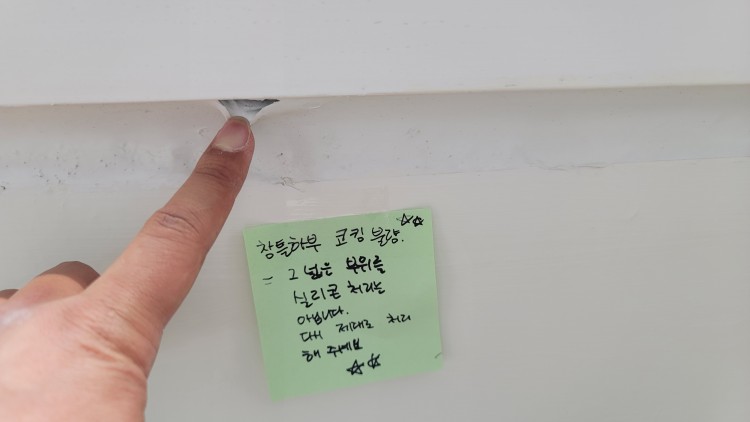 창틀하부 코킹 불량. ☆☆
= 그 넓은 부위를
실리콘 처리는
아닙니다.
다시 제대로 처리
해 주세요
☆☆